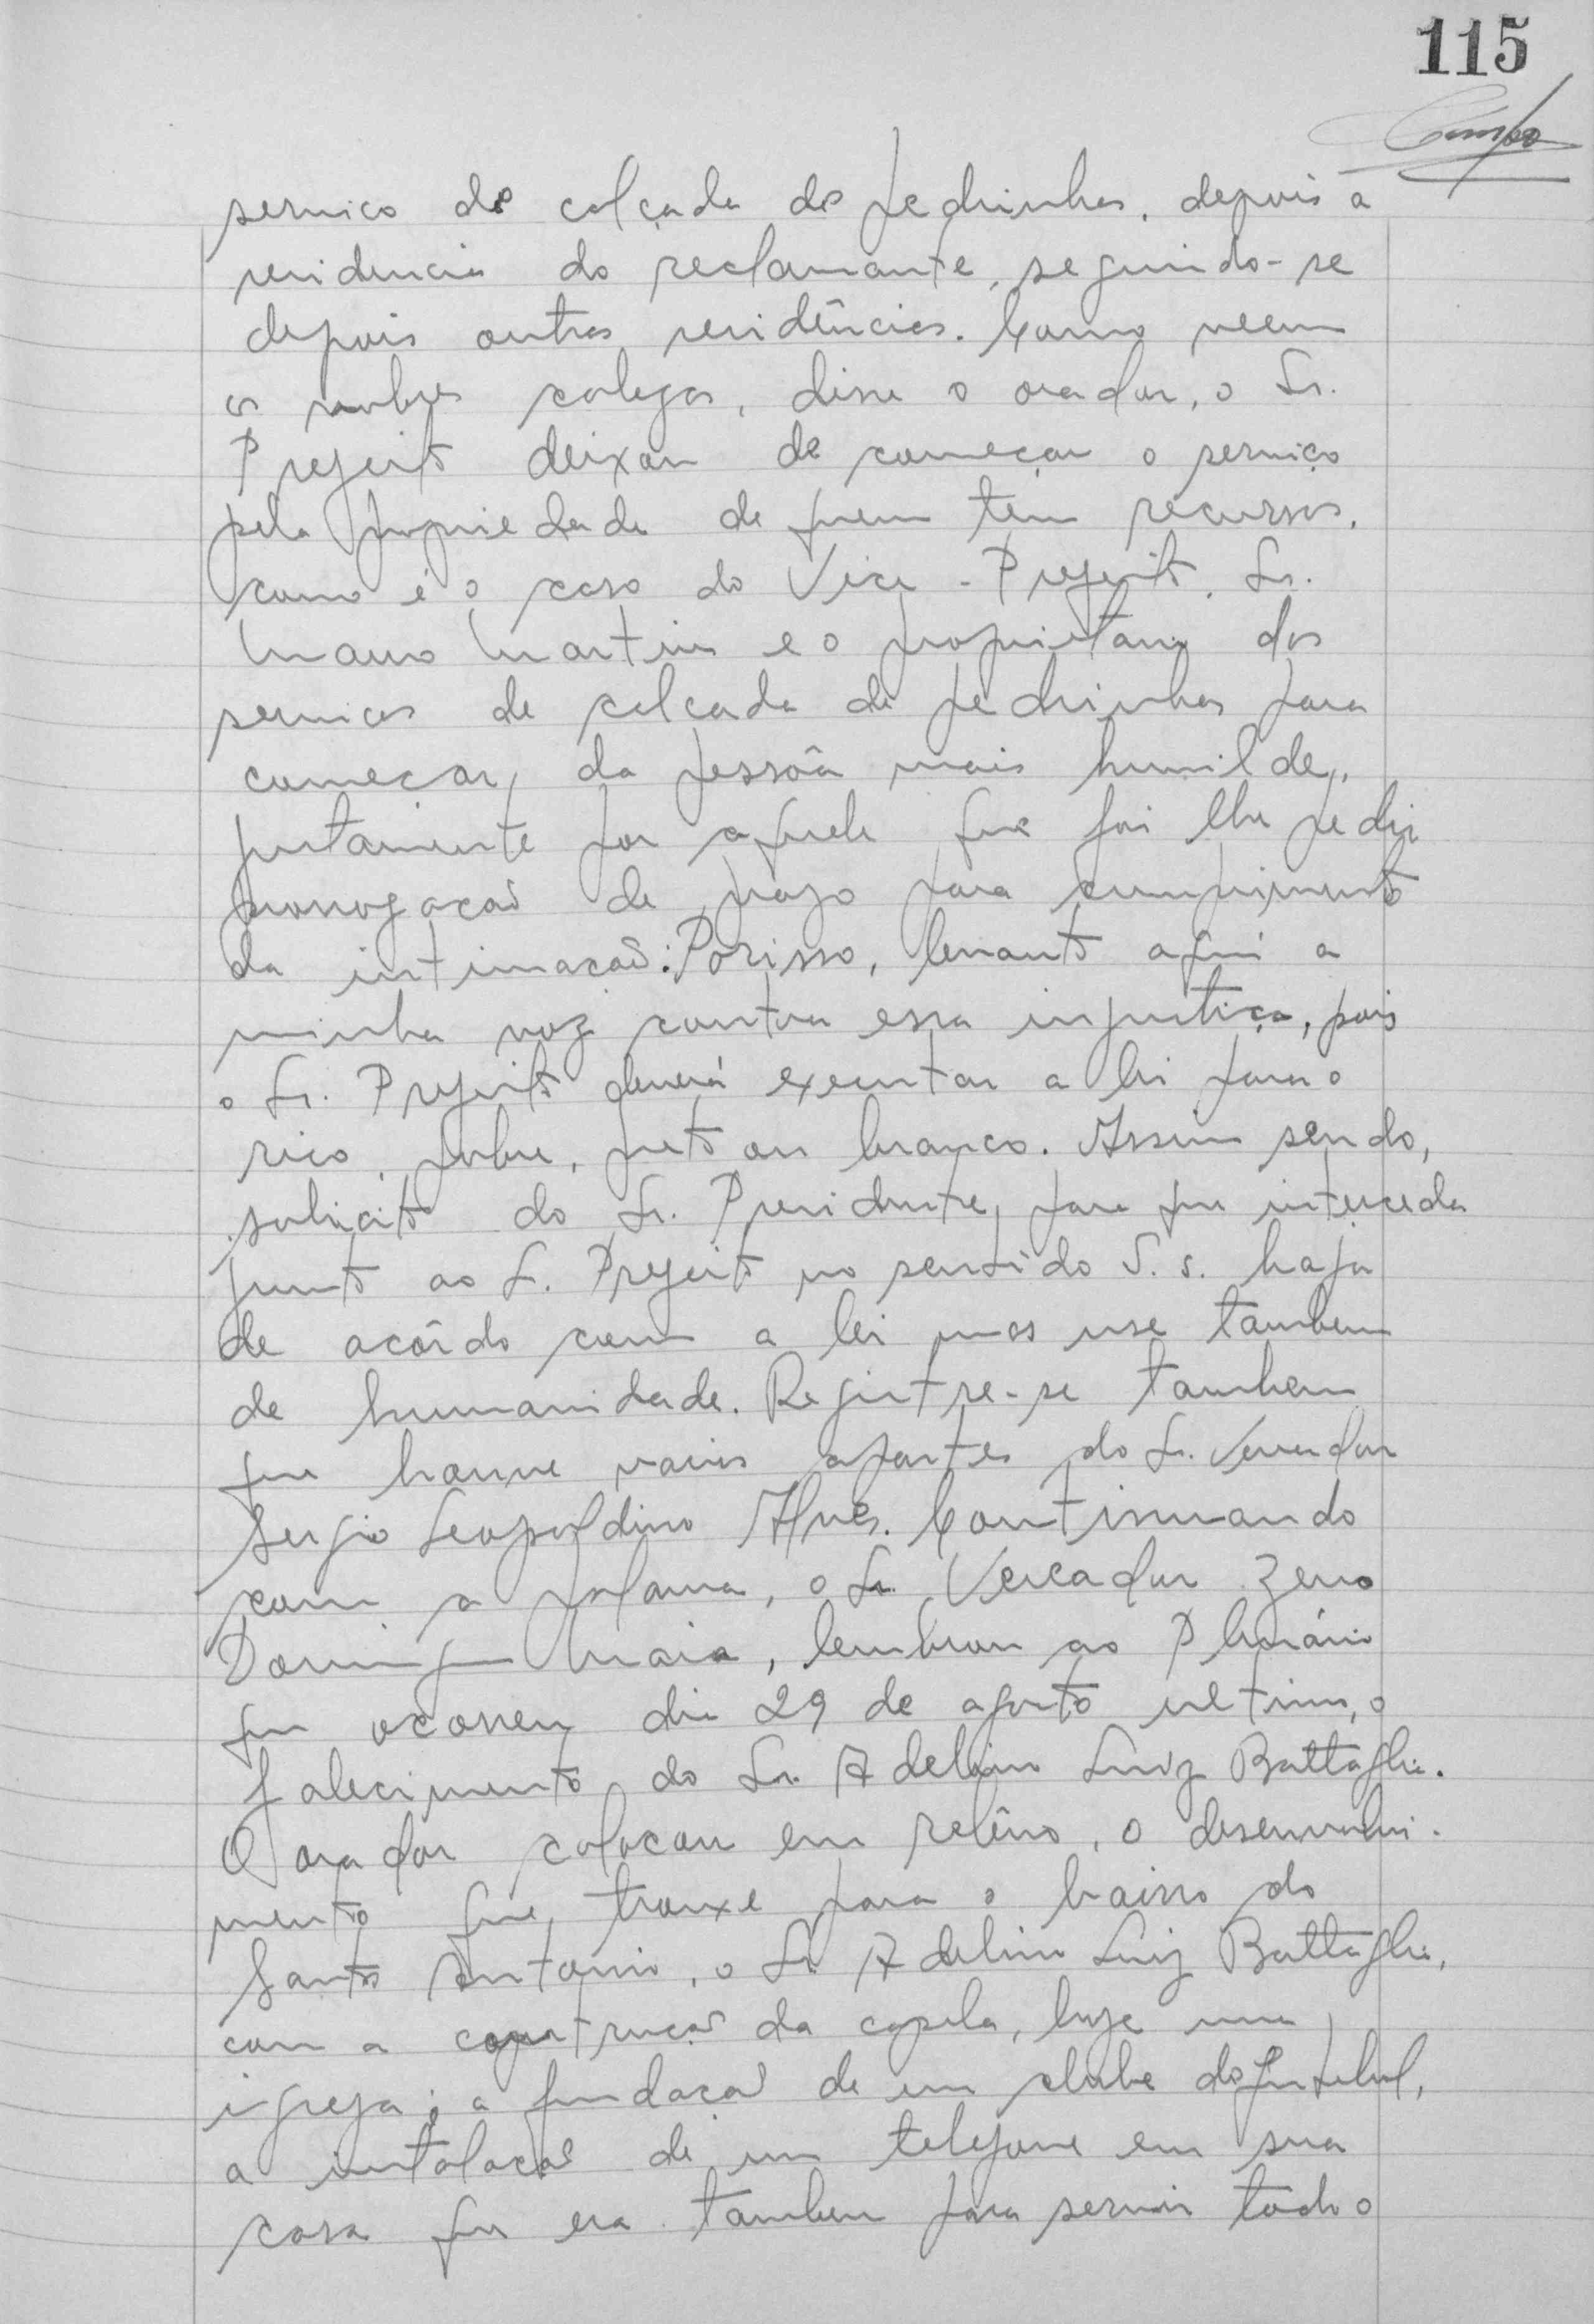 115
serviço de calçada de pedrinhas, depois a
residencia do reclamante, seguindo-se
depois outras residências. Como veem
os nobres colegas, disse o orador, o Sr.
Prefeito deixou de começar o serviço
pela propriedade de quem tem recursos,
como é o caso do Vice-Prefeito, Sr.
Mauro Martins e o proprietario dos
serviços de calçada de pedrinhas para
começar, da pessôa mais humilde,
justamente por aquele que foi lhe pedir
prorrogação de prazo para cumprimento
da intimação: Porisso, levanto aqui a
minha voz contra essa injustiça, pois
o Sr. Prefeito deverá executar a lei para o
rico, pobre, preto ou branco. Assim sendo,
solicito do Sr. Presidente, para que interceda
junto ao S. Prefeito no sentido S. s. haja
de acôrdo com a lei mas use tambem
de humanidade. Registre-se tambem
que houve varios apartes do Sr. Vereador
Sergio Leopoldino Alves. Continuando
com a palavra, o Sr. Vereador Zeno
Domingues Maia, lembrou ao Plenário
que ocorreu dia 29 de agosto ultimo, o
falecimento do Sr. Adelino Luiz Battaglia.
O orador colocou em relêvo, o desenvolvi-
mento que, trouxe para o bairro do
Santo Antonio, o Sr. Adelino Luiz Battaglia,
com a construção da capela, hoje uma
igreja; a fundação de um clube de futebol,
a instalação de um telefone em sua
casa que era tambem para servir todo o